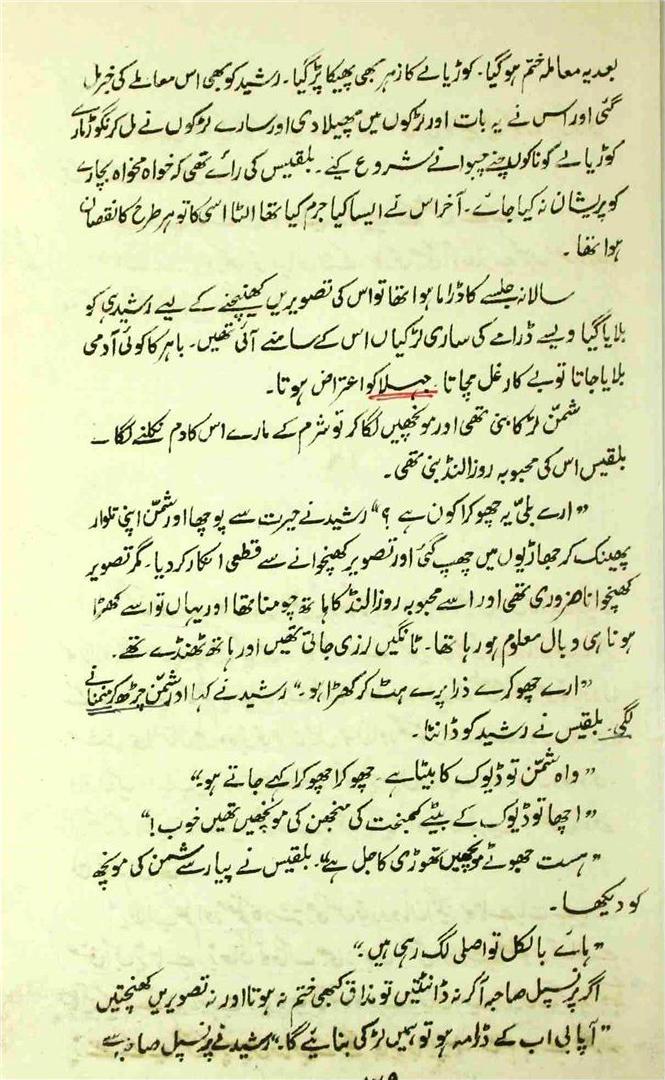 بعد یہ معاملہ ختم ہو گیا۔ کوڑیالے کا زہر بھی پھیکا پڑ گیا۔ رشید کو بھی اس معاملے کی خبر مل
گئی اور اس نے یہ بات اور لڑکوں میں پھیلا دی اور سارے لڑکوں نے مل کر نگوڑ مارے
کوڑیالے کو ناکوں چنے چبوانے شروع کیے۔ بلقیس کی رائے تھی کہ خواہ مخواہ بچارے
کو پریشان نہ کیا جائے۔ آخر اس نے ایسا کیا جرم کیا تھا الٹا اسی کا تو ہر طرح کا نقصان
ہوا تھا۔
سالانہ جلسے کا ڈراما ہوا تھا تو اس کی تصویریں کھینچنے کے لیے رشید ہی کو
بلایا گیا ویسے ڈرامے کی ساری لڑکیاں اس کے سامنے آئی تھیں۔ باہر کا کوئی آدمی
بلایا جاتا تو بے کار غل مچاتا۔ جہلا کو اعتراض ہوتا۔
شمّن لڑکا بنی تھی اور مونچھیں لگا کر تو شرم کے مارے اس کا دم نکلنے لگا۔
بلقیس اس کی محبوبہ روزالنڈ بنی تھی۔
”ارے بلّی یہ چھوکرا کون ہے؟“ رشید نے حیرت سے پوچھا اور شمّن اپنی تلوار
پھینک کر جھاڑیوں میں چھپ گئی اور تصویر کھنچوانے سے قطعی انکار کر دیا۔ مگر تصویر
کھنچوانا ضروری تھی اور اسے محبوبہ روزالنڈ کا ہاتھ چومنا تھا اور یہاں تو اسے کھڑا
ہونا ہی وبال معلوم ہو رہا تھا۔ ٹانگیں لرزی جاتی تھیں اور ہاتھ ٹھنڈے تھے۔
”ارے چھوکرے ذرا پرے ہٹ کر کھڑا ہو۔“ رشید نے کہا اور شمّن چڑھ کر منمنانے
لگی۔ بلقیس نے رشید کو ڈانٹا۔
”واہ شمّن تو ڈیوک کا بیٹا ہے۔ چھوکرا چھوکرا کہے جاتے ہو۔“
”اچھا تو ڈیوک کے بیٹے کمبخت کی منجھن کی مونچھیں تھیں خوب!“
”ہست جھوٹے مونچھیں تھوڑی کاجل ہے“۔ بلقیس نے پیار سے شمن کی مونچھ
کو دیکھا۔
”ہائے بالکل تو اصلی لگ رہی ہیں۔“
اگر پرنسپل صاحبہ آکر نہ ڈانٹتیں تو مذاق کبھی ختم نہ ہوتا اور نہ تصویریں کھنچتیں
”آپا بی اب کے ڈرامہ ہو تو ہمیں لڑکی بنائیے گا۔“ رشید نے پرنسپل صاحبہ سے